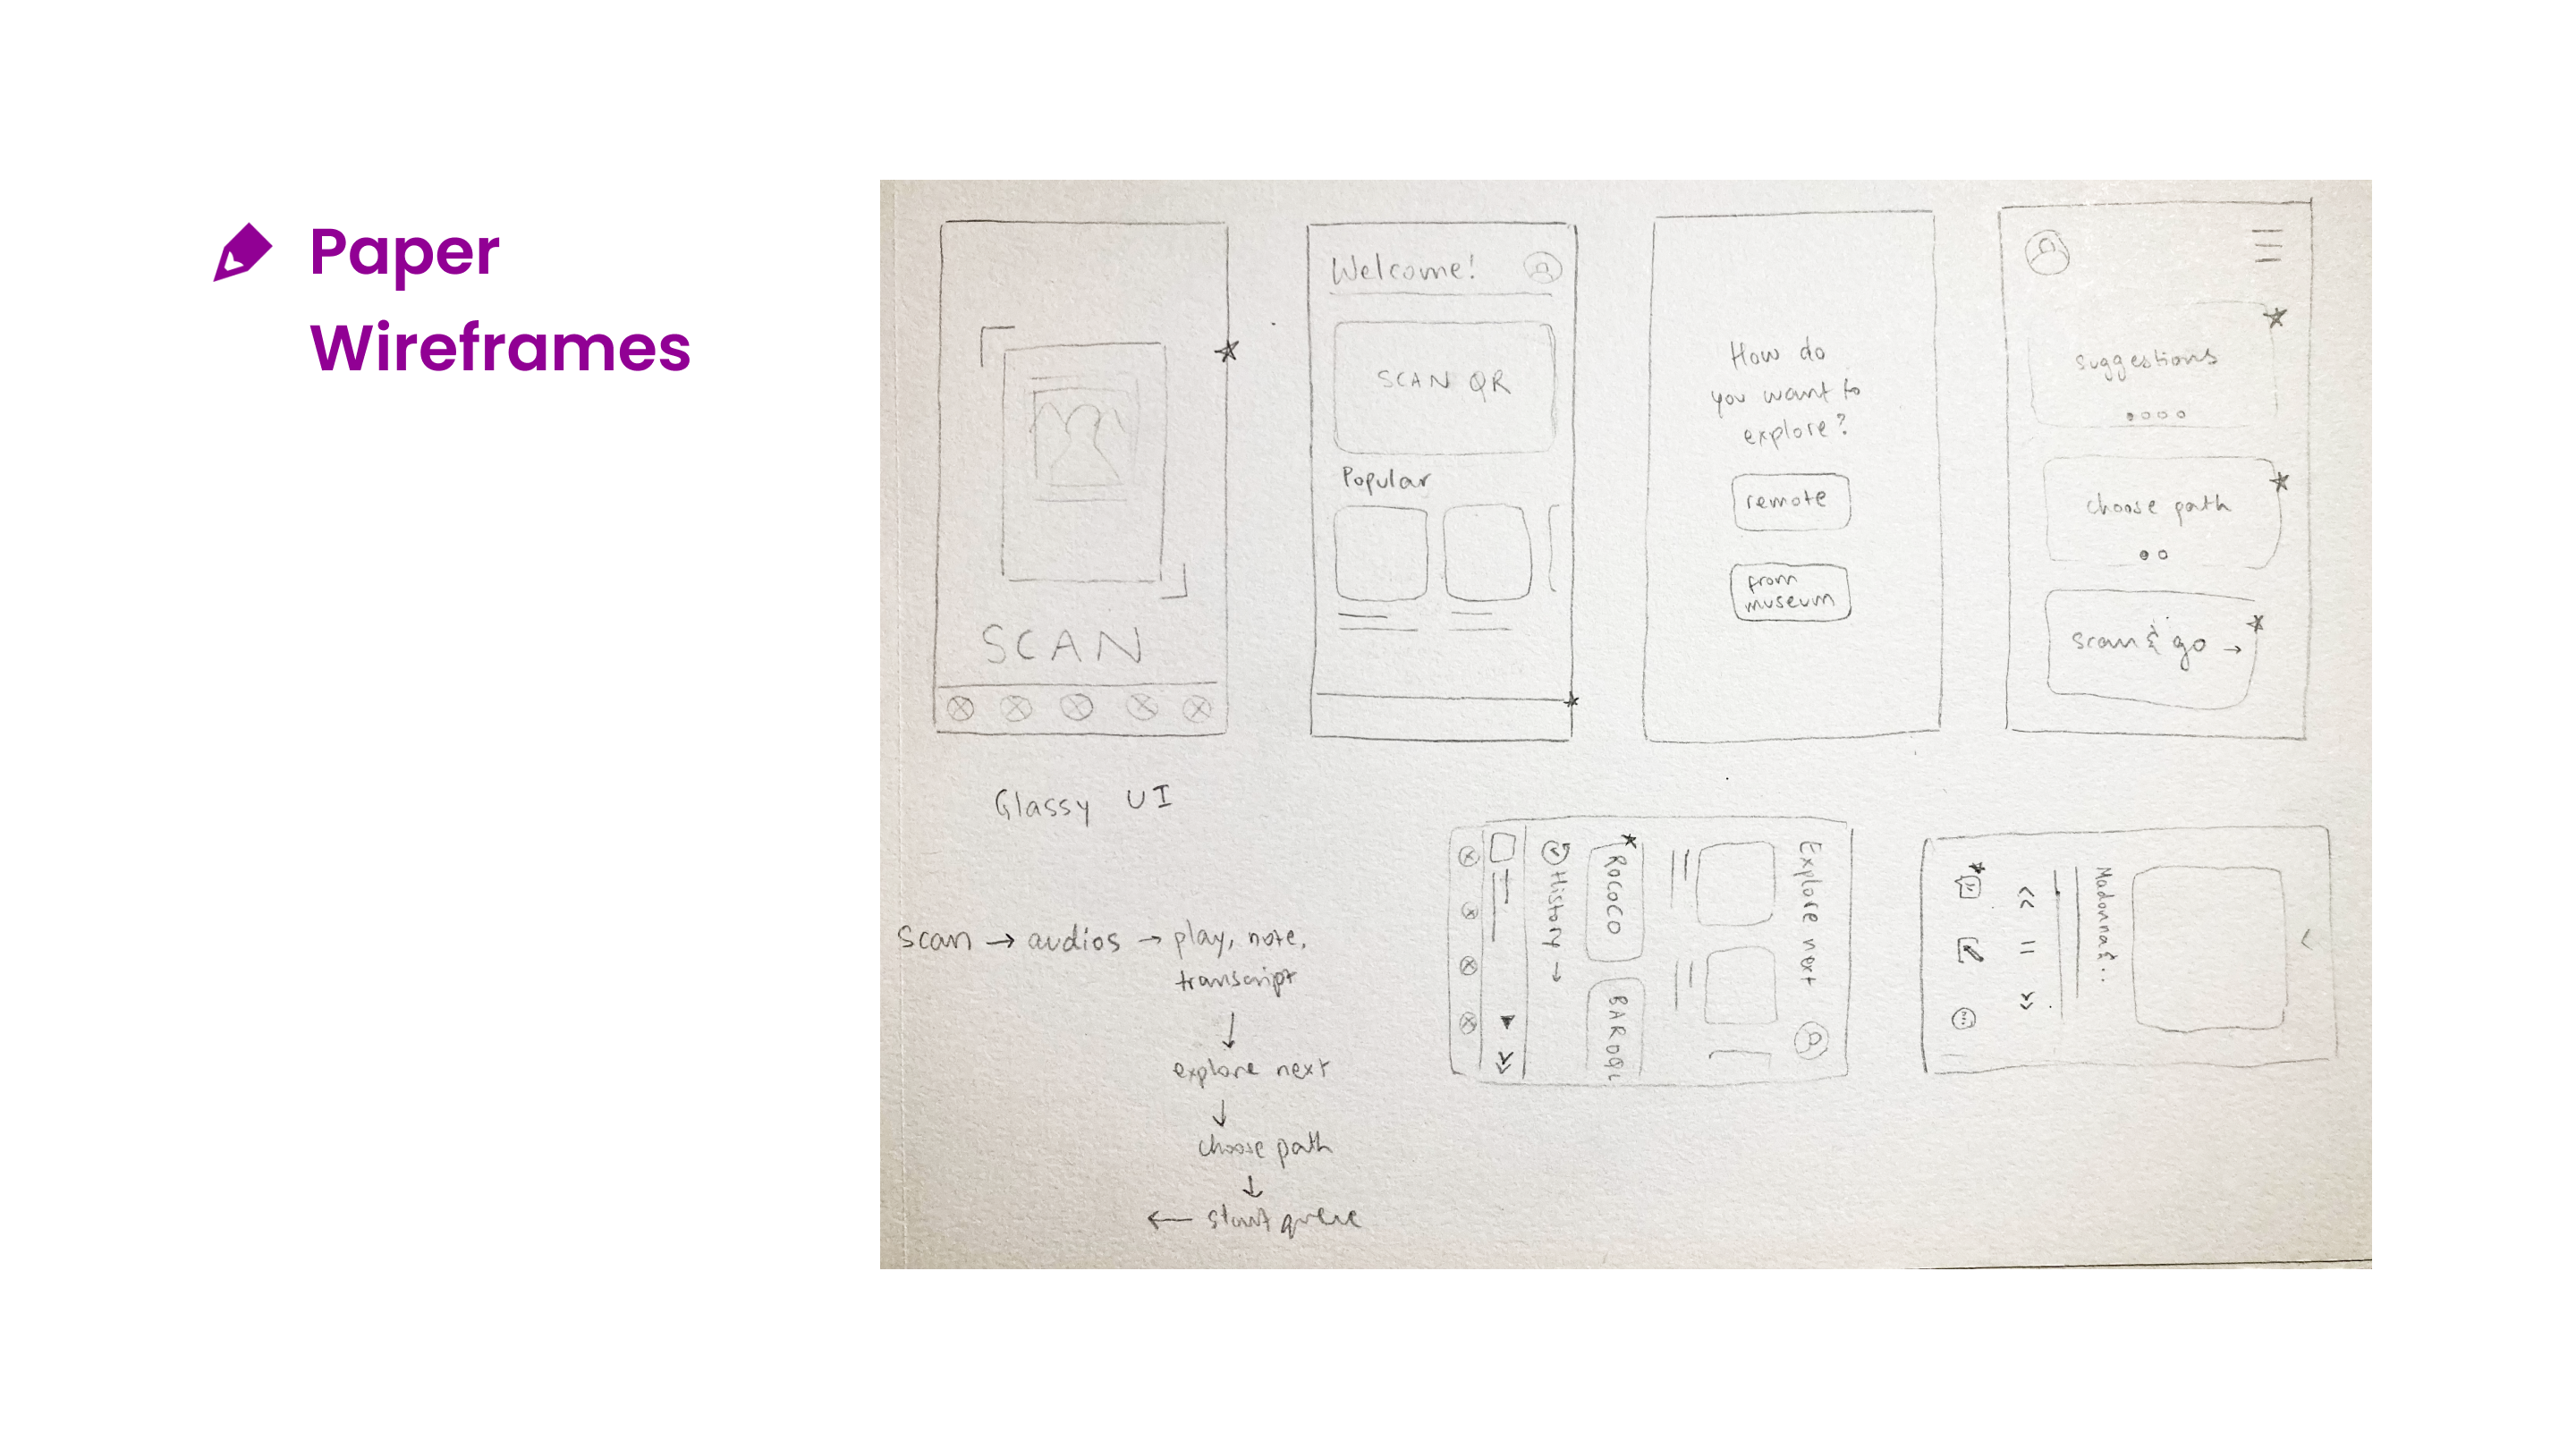 Paper
Wireframes
SCAN
Glassy UI
Welcome!
SCAN QR
Popular
How do
you want to
explore?
remote
from
museum
suggestions
choose path
scan & go →
scan → audios → play, note,
transcript
↓
explore next
↓
choose path
↓
← start queue
Explore next
ROCOCO
BAROQU
History →
Madonna & ..